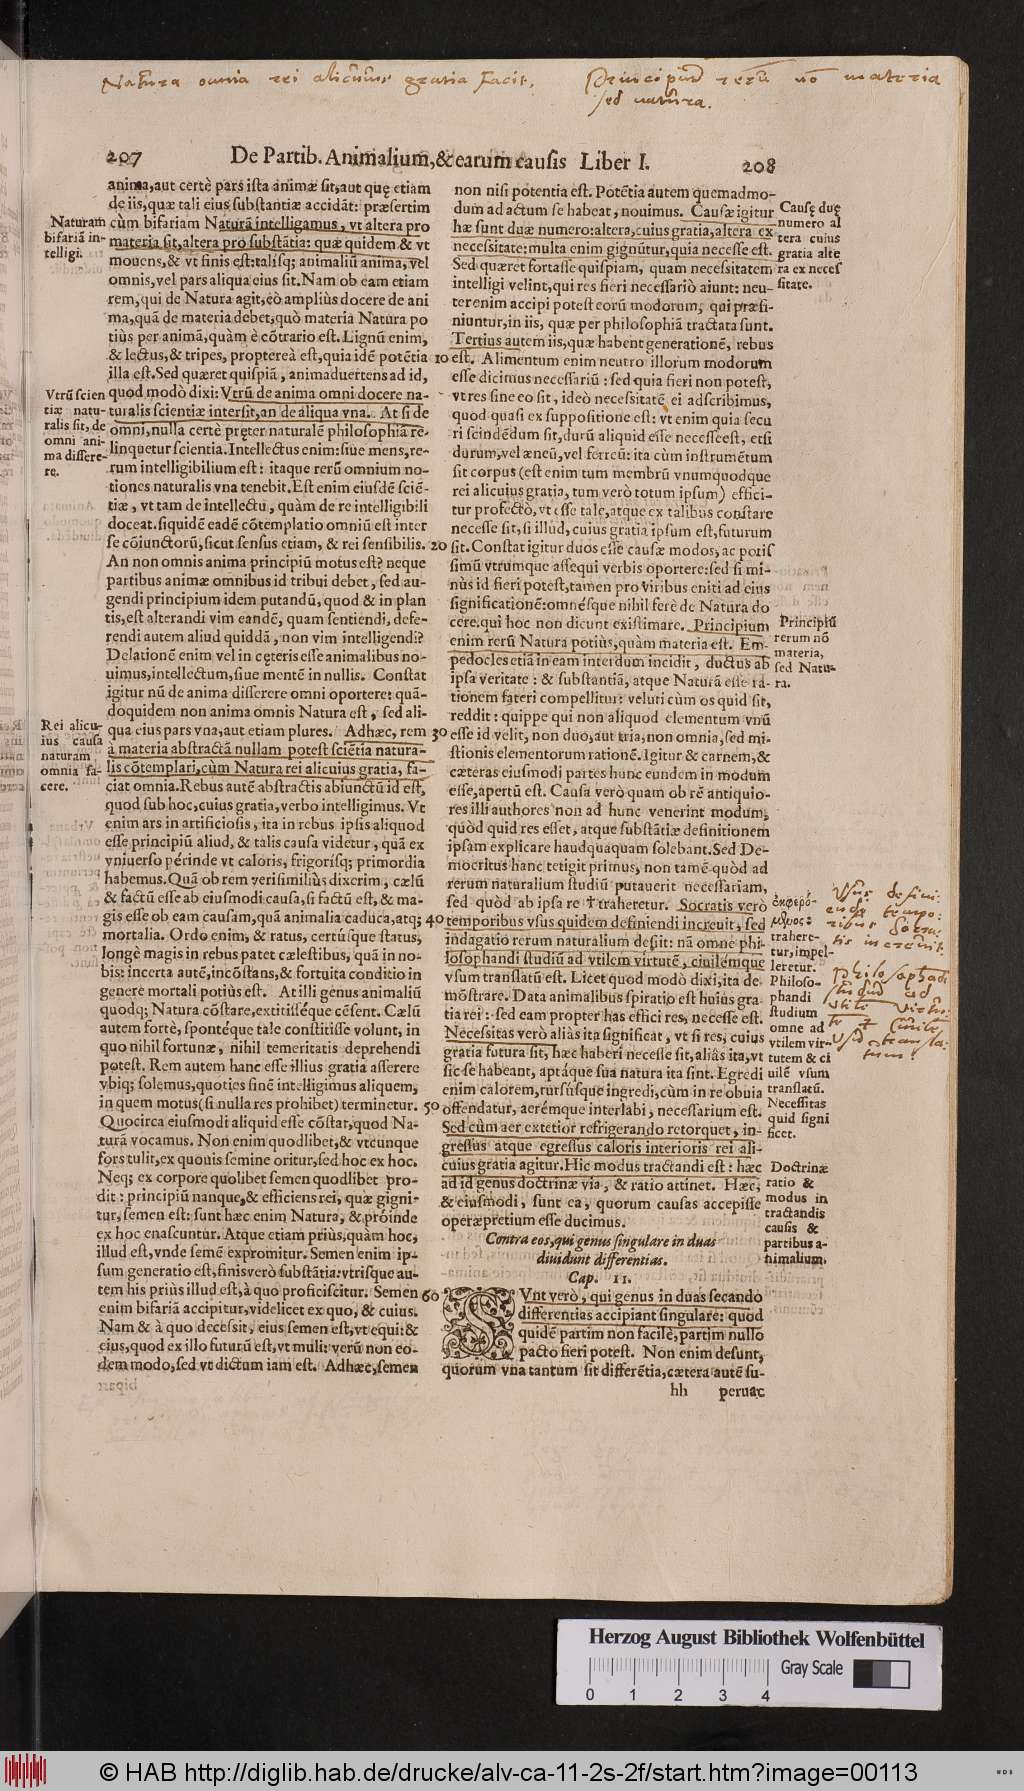 Natura omnia rei alicuius gratia facit. Principiū rerū nō materia
sed natura.
207 De Partib. Animalium, & earum causis Liber I. 208
anima, aut certè pars ista animæ sit, aut quę etiam
de iis, quæ tali eius substantiæ accidāt: præsertim
cùm bifariam Naturā intelligamus, vt altera pro
materia sit, altera pro substātia: quæ quidem & vt
mouens, & vt finis est: talisq; animaliū anima, vel
omnis, vel pars aliqua eius sit. Nam ob eam etiam
rem, qui de Natura agit, eò ampliùs docere de ani
ma, quā de materia debet, quò materia Natura po
tiùs per animā, quàm è cōtrario est. Lignū enim,
& lectus, & tripes, proptereà est, quia idē potētia
illa est. Sed quæret quispiā, animaduertens ad id,
quod modò dixi: Vtrū de anima omni docere na-
turalis scientiæ intersit, an de aliqua vna. At si de
omni, nulla certè pręter naturalē philosophiā re-
linquetur scientia. Intellectus enim: siue mens, re-
rum intelligibilium est: itaque rerū omnium no-
tiones naturalis vna tenebit. Est enim eiusdē sciē-
tiæ, vt tam de intellectu, quàm de re intelligibili
doceat. siquidē eadē cōtemplatio omniū est inter
se cōiunctorū, sicut sensus etiam, & rei sensibilis.
An non omnis anima principiū motus est? neque
partibus animæ omnibus id tribui debet, sed au-
gendi principium idem putandū, quod & in plan
tis, est alterandi vim eandē, quam sentiendi, defe-
rendi autem aliud quiddā, non vim intelligendi?
Delationē enim vel in cęteris esse animalibus no-
uimus, intellectum, siue mentē in nullis. Constat
igitur nū de anima disserere omni oportere: quā-
doquidem non anima omnis Natura est, sed ali-
qua eius pars vna, aut etiam plures. Adhæc, rem
à materia abstractā nullam potest sciētia natura-
lis cōtemplari, cùm Natura rei alicuius gratia, fa-
ciat omnia. Rebus autē abstractis abiunctū id est,
quod sub hoc, cuius gratia, verbo intelligimus. Vt
enim ars in artificiosis, ita in rebus ipsis aliquod
esse principiū aliud, & talis causa videtur, quā ex
vniuerso périnde vt caloris, frigorisq; primordia
habemus. Quā ob rem verisimiliùs dixerim, cælū
& factū esse ab eiusmodi causa, si factū est, & ma-
gis esse ob eam causam, quā animalia caduca, atq;
mortalia. Ordo enim, & ratus, certúsque status,
longè magis in rebus patet cælestibus, quā in no-
bis: incerta autē, incōstans, & fortuita conditio in
genere mortali potiùs est. At illi genus animaliū
quodq; Natura cōstare, extitisséque cēsent. Cælū
autem fortè, spontéque tale constitisse volunt, in
quo nihil fortunæ, nihil temeritatis deprehendi
potest. Rem autem hanc esse illius gratia asserere
vbiq; solemus, quoties finē intelligimus aliquem,
in quem motus (si nulla res prohibet) terminetur.
Quocirca eiusmodi aliquid esse cōstat, quod Na-
turā vocamus. Non enim quodlibet, & vtcunque
fors tulit, ex quouis semine oritur, sed hoc ex hoc.
Neq; ex corpore quolibet semen quodlibet pro-
dit: principiū nanque, & efficiens rei, quæ gigni-
tur, semen est: sunt hæc enim Natura, & próinde
ex hoc enascuntur. Atque etiam priùs, quàm hoc,
illud est, vnde semē expromitur. Semen enim ip-
sum generatio est, finis verò substātia: vtrisque au-
tem his priùs illud est, à quo proficiscitur. Semen
enim bifariā accipitur, videlicet ex quo, & cuius.
Nam & à quo decessit, eius semen est, vt equi: &
eius, quod ex illo futurū est, vt muli: verū non eo-
dem modo, sed vt dictum iam est. Adhæc, semen
Naturam
bifariā in-
telligi.
Vtrū scien
tiæ natu-
ralis sit, de
omni ani-
ma dissere-
re.
Rei alicu-
ius causa
naturam
omnia fa-
cere.
10
20
30
40
50
60
non nisi potentia est. Potētia autem quemadmo-
dum ad actum se habeat, nouimus. Causæ igitur
hæ sunt duæ numero: altera, cuius gratia, altera ex
necessitate: multa enim gignūtur, quia necesse est.
Sed quæret fortasse quispiam, quam necessitatem
intelligi velint, qui res fieri necessariò aiunt: neu-
ter enim accipi potest eorū modorum, qui præfi-
niuntur, in iis, quæ per philosophiā tractata sunt.
Tertius autem iis, quæ habent generationē, rebus
est. Alimentum enim neutro illorum modorum
esse dicimus necessariū: sed quia fieri non potest,
vt res sine eo sit, ideò necessitatē ei adscribimus,
quod quasi ex suppositione est: vt enim quia secu
ri scindēdum sit, durū aliquid esse necesse est, etsi
durum, vel æneū, vel ferreū: ita cùm instrumētum
sit corpus (est enim tum membrū vnumquodque
rei alicuius gratia, tum verò totum ipsum) effici-
tur profectò, vt esse tale, atque ex talibus constare
necesse sit, si illud, cuius gratia ipsum est, futurum
sit. Constat igitur duos esse causæ modos, ac potis
simū vtrumque assequi verbis oportere: sed si mi-
nùs id fieri potest, tamen pro viribus eniti ad eius
significationē: omnésque nihil ferè de Natura do
cere. qui hoc non dicunt existimare. Principium
enim rerū Natura potiùs, quàm materia est. Em-
pedocles etiā in eam interdum incidit, ductus ab
ipsa veritate: & substantiā, atque Naturā esse ra-
tionem fateri compellitur: veluti cùm os quid sit,
reddit: quippe qui non aliquod elementum vnū
esse id velit, non duo, aut tria, non omnia, sed mi-
stionis elementorum rationē. Igitur & carnem, &
cæteras eiusmodi partes hunc eundem in modum
esse, apertū est. Causa verò quam ob rē antiquio-
res illi authores non ad hunc venerint modum,
quòd quid res esset, atque substātiæ definitionem
ipsam explicare haudquaquam solebant. Sed De-
mocritus hanc tetigit primus, non tamē quòd ad
rerum naturalium studiū putauerit necessariam,
sed quòd ab ipsa re † traheretur. Socratis verò
temporibus vsus quidem definiendi increuit, sed
indagatio rerum naturalium desiit: nā omne phi-
losophandi studiū ad vtilem virtutē, ciuilémque
vsum translatū est. Licet quod modò dixi, ita de-
mōstrare. Data animalibus spiratio est huius gra-
tia rei: sed eam propter has effici res, necesse est.
Necessitas verò aliàs ita significat, vt si res, cuius
gratia futura sit, hæc haberi necesse sit, aliàs ita, vt
sic se habeant, aptáque sua natura ita sint. Egredi
enim calorem, rursúsque ingredi, cùm in re obuia
offendatur, aerémque interlabi, necessarium est.
Sed cùm aer exterior refrigerando retorquet, in-
gressus atque egressus caloris interioris rei ali-
cuius gratia agitur. Hic modus tractandi est: hæc
ad id genus doctrinæ via, & ratio attinet. Hæc,
& eiusmodi, sunt ea, quorum causas accepisse
operæpretium esse ducimus.
Contra eos, qui genus singulare in duas
diuidunt differentias.
Cap. II.
SVnt verò, qui genus in duas secando
differentias accipiant singulare: quod
quidē partim non facilè, partim nullo
pacto fieri potest. Non enim desunt,
quorum vna tantum sit differētia, cætera autē su-
hh peruac
Causę duę
numero al
tera cuius
gratia alte
ra ex neces
sitate.
Principiū
rerum nō
materia,
sed Natu-
ra.
ἐκφερό-
μενος:
trahere-
tur, impel-
leretur.
Philoso-
phandi
studium
omne ad
vtilem vir-
tutem & ci
uilē vsum
translatū.
Necessitas
quid signi
ficet.
Doctrinæ
ratio &
modus in
tractandis
causis &
partibus a-
nimalium.
Vsus defini-
endi tempo-
ribus Socra-
tis increuit.
philosophādi
studiū ad
vtilē virtu-
tē & ciuilē
vsū transla-
tum.
Herzog August Bibliothek Wolfenbüttel
Gray Scale
0 1 2 3 4
© HAB http://diglib.hab.de/drucke/alv-ca-11-2s-2f/start.htm?image=00113